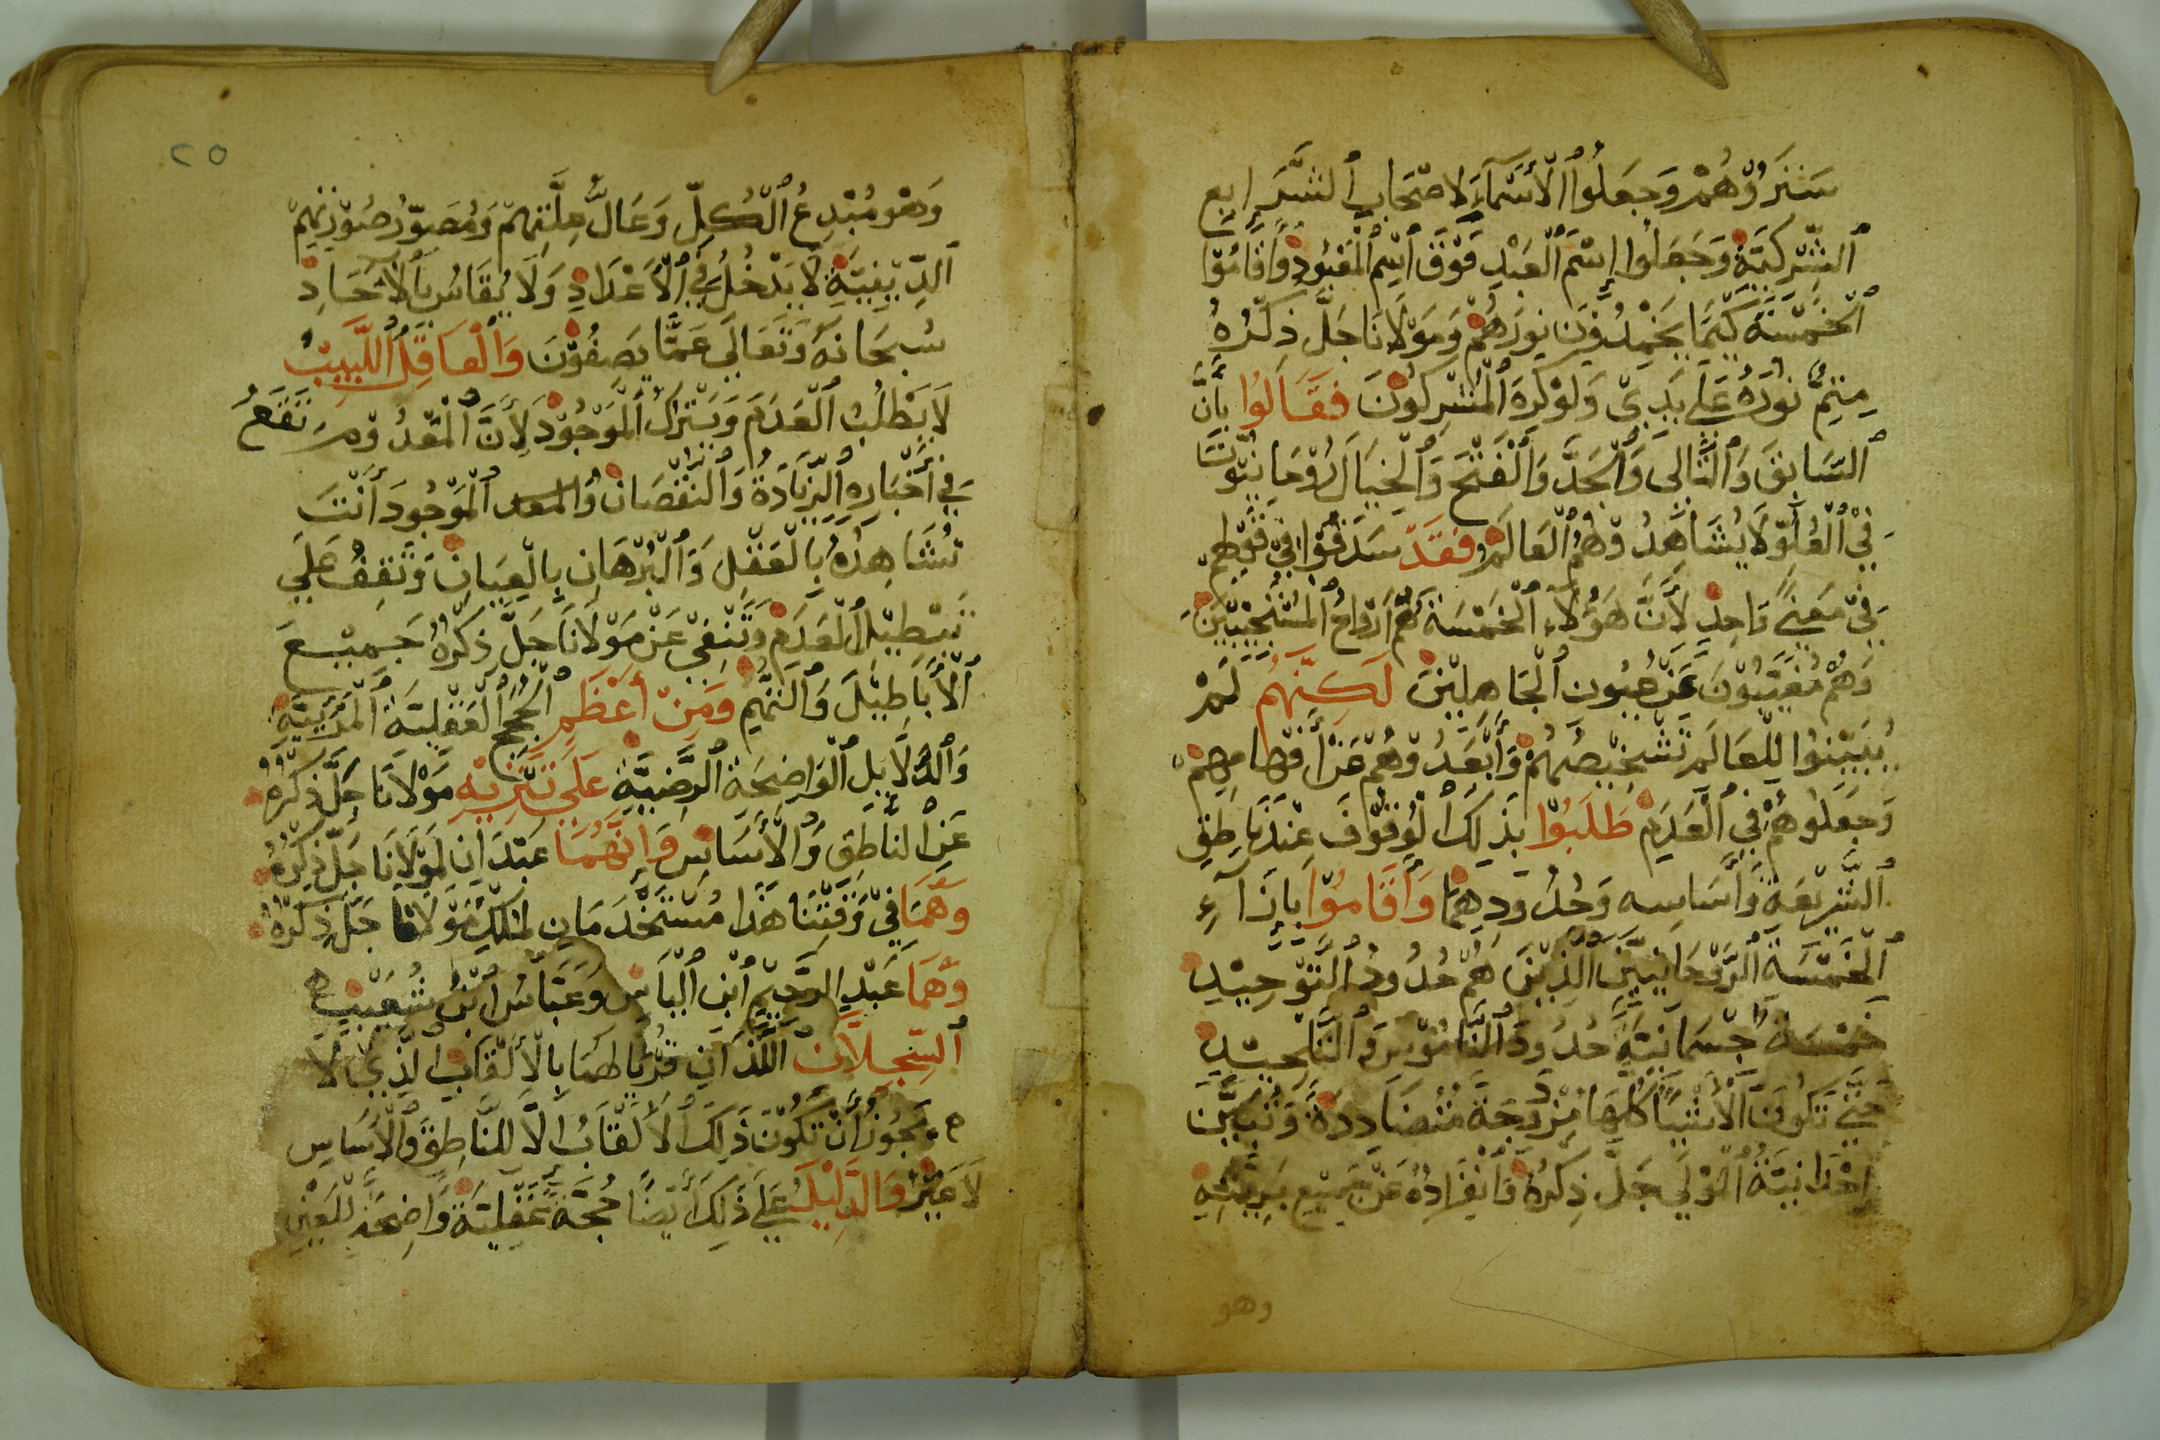 سَتَرُوْهُمْ وَجَعَلُوا ٱلْأَسْمَآءَ لِاصْحَابِ ٱلشَّرَايِع
ٱلشِّرْكِيَّةِ وَجَعَلُوا إِسْمَ ٱلْعَبْدِ فَوْقَ ٱسْمِ ٱلْمَعْبُوْدِ وَأَقَامُوْا
ٱلْخَمْسَةَ كَيْمَا يَخْمِدُوْنَ نورَهُمْ وَمَوْلَانَا جَلَّ ذِكْرُهُ
مِتِمُّ نورَهُ عَلَي يَدِيْ وَلَوْ كَرِهَ ٱلْمُشْرِكُونَ فَقَالُوا بأَنَّ
ٱلسَّابِقَ وَٱلتَّالِى وَٱلْجَدَّ وَٱلْفَتْحَ وَٱلْخِيَالَ رُوْحَانِيُّوْنَ
فِيْ ٱلْعُلُوّ لَا يُشَاهِدُ وْهُمُ ٱلْعَالَمُ فَقَدْ سَدَقُوْا فِيْ قَوْلِهِمْ
فِيْ مَعْنًى وَاحِدٍ لِأَنَّ هَؤُلَآءِ ٱلْخَمْسَةَ هُمْ أَرْوَاحُ ٱلْمُسْتَجِيْبِيْنَ
وَهُمْ مُغَيَّبُوْنَ عَنْ عِيُون ٱلْجَاهِلِيْنَ لَكِنَّهُم لَمْ
يُبَيِّنُوا لِلْعَالَمِ تَشْخِيْصَهُمْ وَأَبْعَدُ وْهُمْ عَنْ أَفْهَامِهِمْ
وَجَعَلُوهُمْ فِي ٱلْعَدَمِ طَلَبُوْا بِذَلِكَ ٱلْوُقُوْفَ عِنْدَ نَاطِقِ
ٱلشَّرِيْعَةِ وَأَسَاسِه وَحُدُوْدِهِمَا وَأَقَامُوْا بإِزَآءِ
ٱلْخَمْسَةِ ٱلرُّوْحَانِيِّيْنَ ٱلَّذِيْنَ هُمْ حُدُودُ ٱلتَّوْحِيْدِ
خَمْسَةً جِسْمَانِيَّةً حدُوْدَ ٱلنَّامُوْسِ وَٱلتَّلْحِيْدِ
حَتَّى تَكُوْنَ ٱلْأَشْيَآ كُلُّهَا مُزْدَوِجَةً مُتَضَادِدَةً وَتُبَيِّنَ
احْدَانِيَّةُ ٱلْمَوْلَي جَلَّ ذِكْرُهُ وَٱنْفِرَادُهُ عَنْ جَمِيْعِ بَرِيَّتِهِ
وهو
٢٥
وَهْوَ مُبْدِعُ ٱلْكُلِّ وَعَالُّ عِلَّتِهِمْ وَمُصَوِّرُ صُوْرَتِهِمْ
ٱلدِّيْنِيَّةِ لَا يَدْخُلُ فِي ٱلْأَعْدَادِ وَلَا يُقَاسُ بِٱلْآحَادِ
سُبْحَانَهُ وَتَعَالَي عَمَّا يَصِفُوْنَ وَٱلْعَاقِلُ ٱللَّبِيْبُ
لَا يَطْلُبُ ٱلْعَدَمَ وَيَتْرُكُ ٱلْمَوْجُوْدَ لِأَنَّ ٱلْمَعْدُ وْمَ تَقَعُ
فِي أَخْبَارِهِ ٱلزِّيَادَةُ وَٱلنُّقْصَانُ ٱلْمَوْجُودَ أَنْتَ
تُشَاهِدُهُ بِالْعَقْلِ وَٱلْبُرْهَانِ بِالْعِيَانِ وَتَقِفُ عَلَي
تَبْطِيْلِ ٱلْعَدَمِ وَتَنْفِيْ عَنْ مَوْلَانَا جَلَّ ذِكْرُهُ جَمِيْعَ
ٱلْأَبَاطِيْلَ وَٱلتَّتْمِيْمِ وَمِنْ أَعْظَمِ ٱلْحُجَجِ ٱلْعَقْلِيَّةِ ٱلْمَرْئِيَّةِ
وَٱلدَّلَايِلِ ٱلْوَاضِحَةِ ٱلرَّضِيَّةِ عَلَي تَنْزِيْهِ مَوْلَانَا جَلَّ ذِكْرُهُ
عَنِ ٱلنَّاطِقِ وَٱلْأَسَاسِ وَانَّهُمَا عَبْدَانِ لِمَوْلَانَا جَلَّ ذِكْرُهُ
وهُمَا فِيْ وَقْتِنَا هَذَا مُسْتَخْدَمَانِ لِمُلْكِ مَوْلَانَا جَلَّ ذِكْرُهُ
وَهُمَا عَبْدِ الرَّحِيْمِ ٱبْنِ ٱلْيَاسِ وَعَبَّاسُ ٱبْنُ شُعَيْبٍ
ٱلسِّجِلَّان ٱللَّذَانِ قُرِئَا لَهُمَا بِالْأَلْقَابِ ٱلَّذِي لَا
يَجُوزُ أَنْ تَكُوْنَ ذَلِكَ ٱلْأَلْقَابُ الَّا لِلنَّاطِقِ وَٱلْأَسَاسِ
لَا غَيْرُ وَالدَّلِيْلُ عَلَي ذَلِكَ أَيْضًا حُجَّةٌ عَقْلِيَّةٌ وَاضِحَةٌ لِلْعَيْنِ